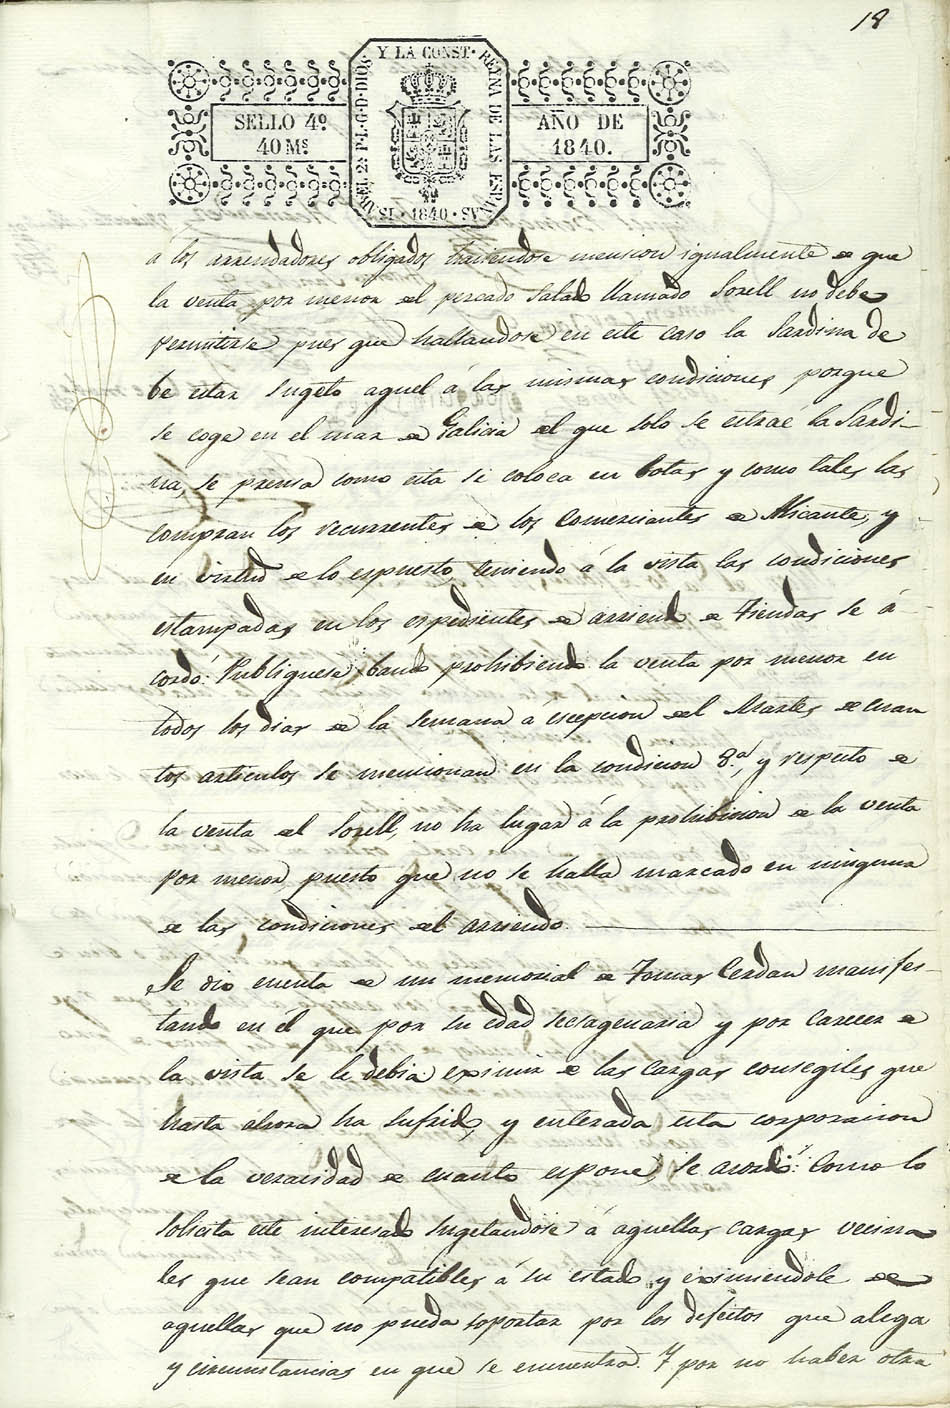 18
SELLO 4º
40 Mˢ
ISABEL 2ª P. L. G. D. DIOS Y LA CONST. REYNA DE LAS ESPAÑAS · 1840 ·
AÑO DE
1840.
á los arrendadores obligados haciendose mension igualmente de que
la venta por menor del pescado salado llamado Sorell no debe
permitirse pues que hallandose en este caso la Sardina de
be estar sugeto aquel á las mismas condiciones porque
se coge en el mar de Galicia del que solo se estrae la Sardi-
na, se prensa como esta se coloca en botas y como tales las
compran los recurrentes de los Comerciantes de Alicante, y
en virtud de lo espuesto, teniendo á la vista las condiciones
estampadas en los espedientes de arriendo de Tiendas se á
cordó: Publiquese bando prohibiendo la venta por menor en
todos los dias de la semana á escepcion del Martes de cuan
tos articulos se mencionan en la condicion 8.ª, y respecto de
la venta del Sorell, no ha lugar á la prohibicion de la venta
por menor, puesto que no se halla marcado en ninguna
de las condiciones del arriendo.
Se dio cuenta de un memorial de Tomas Cerdan manifes-
tando en él que por su edad secsagenaria y por carecer de
la vista se le debia eximir de las cargas consegiles que
hasta ahora ha sufrido, y enterada esta corporacion
de la veracidad de cuanto espone, se acordó: Como lo
solicita este interesado sugetandose á aquellas cargas vecina
les que sean compatibles á su estado, y eximiendole de
aquellas que no pueda soportar por los defectos que alega
y circunstancias en que se encuentra. Y por no haber otra